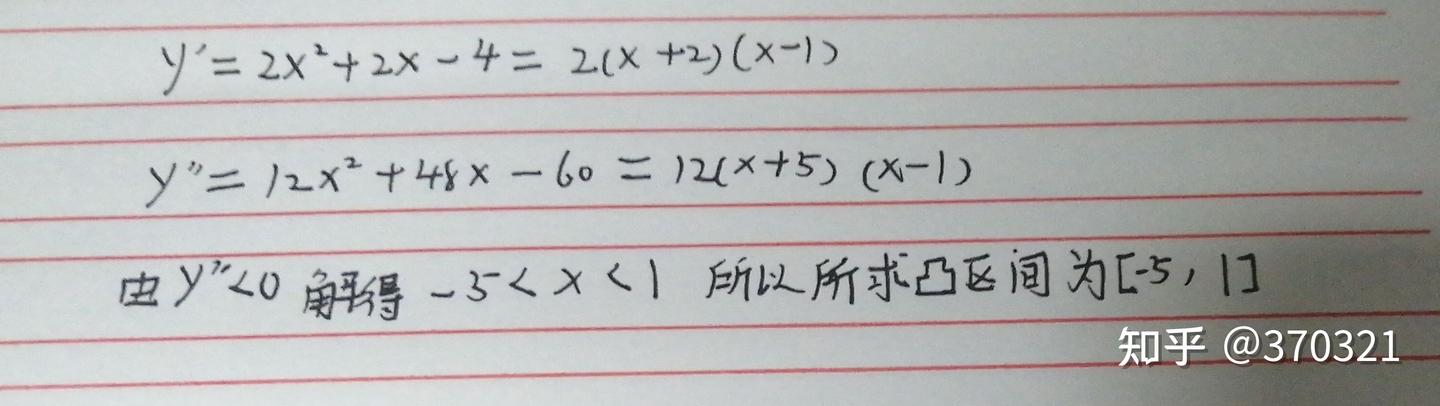 y′= 2x²+2x-4= 2(x+2)(x-1)
y″= 12x²+48x-60 = 12(x+5)(x-1)
由y″<0 解得 -5<x<1 所以所求凸区间为[-5, 1]
知乎 @370321